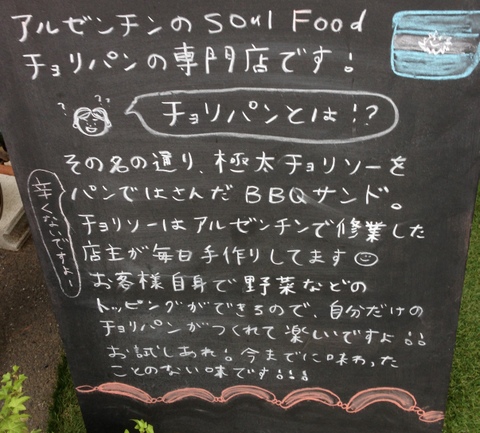 アルゼンチンのSoul Food
チョリパンの専門店です!
? ??
チョリパンとは!?
その名の通り、極太チョリソーを
パンではさんだBBQサンド。
辛くないですよ!
チョリソーはアルゼンチンで修業した
店主が毎日手作りしてます☺
お客様自身で野菜などの
トッピングができるので、自分だけの
チョリパンがつくれて楽しいですよ!!
お試しあれ!今までに味わった
ことのない味です!!!